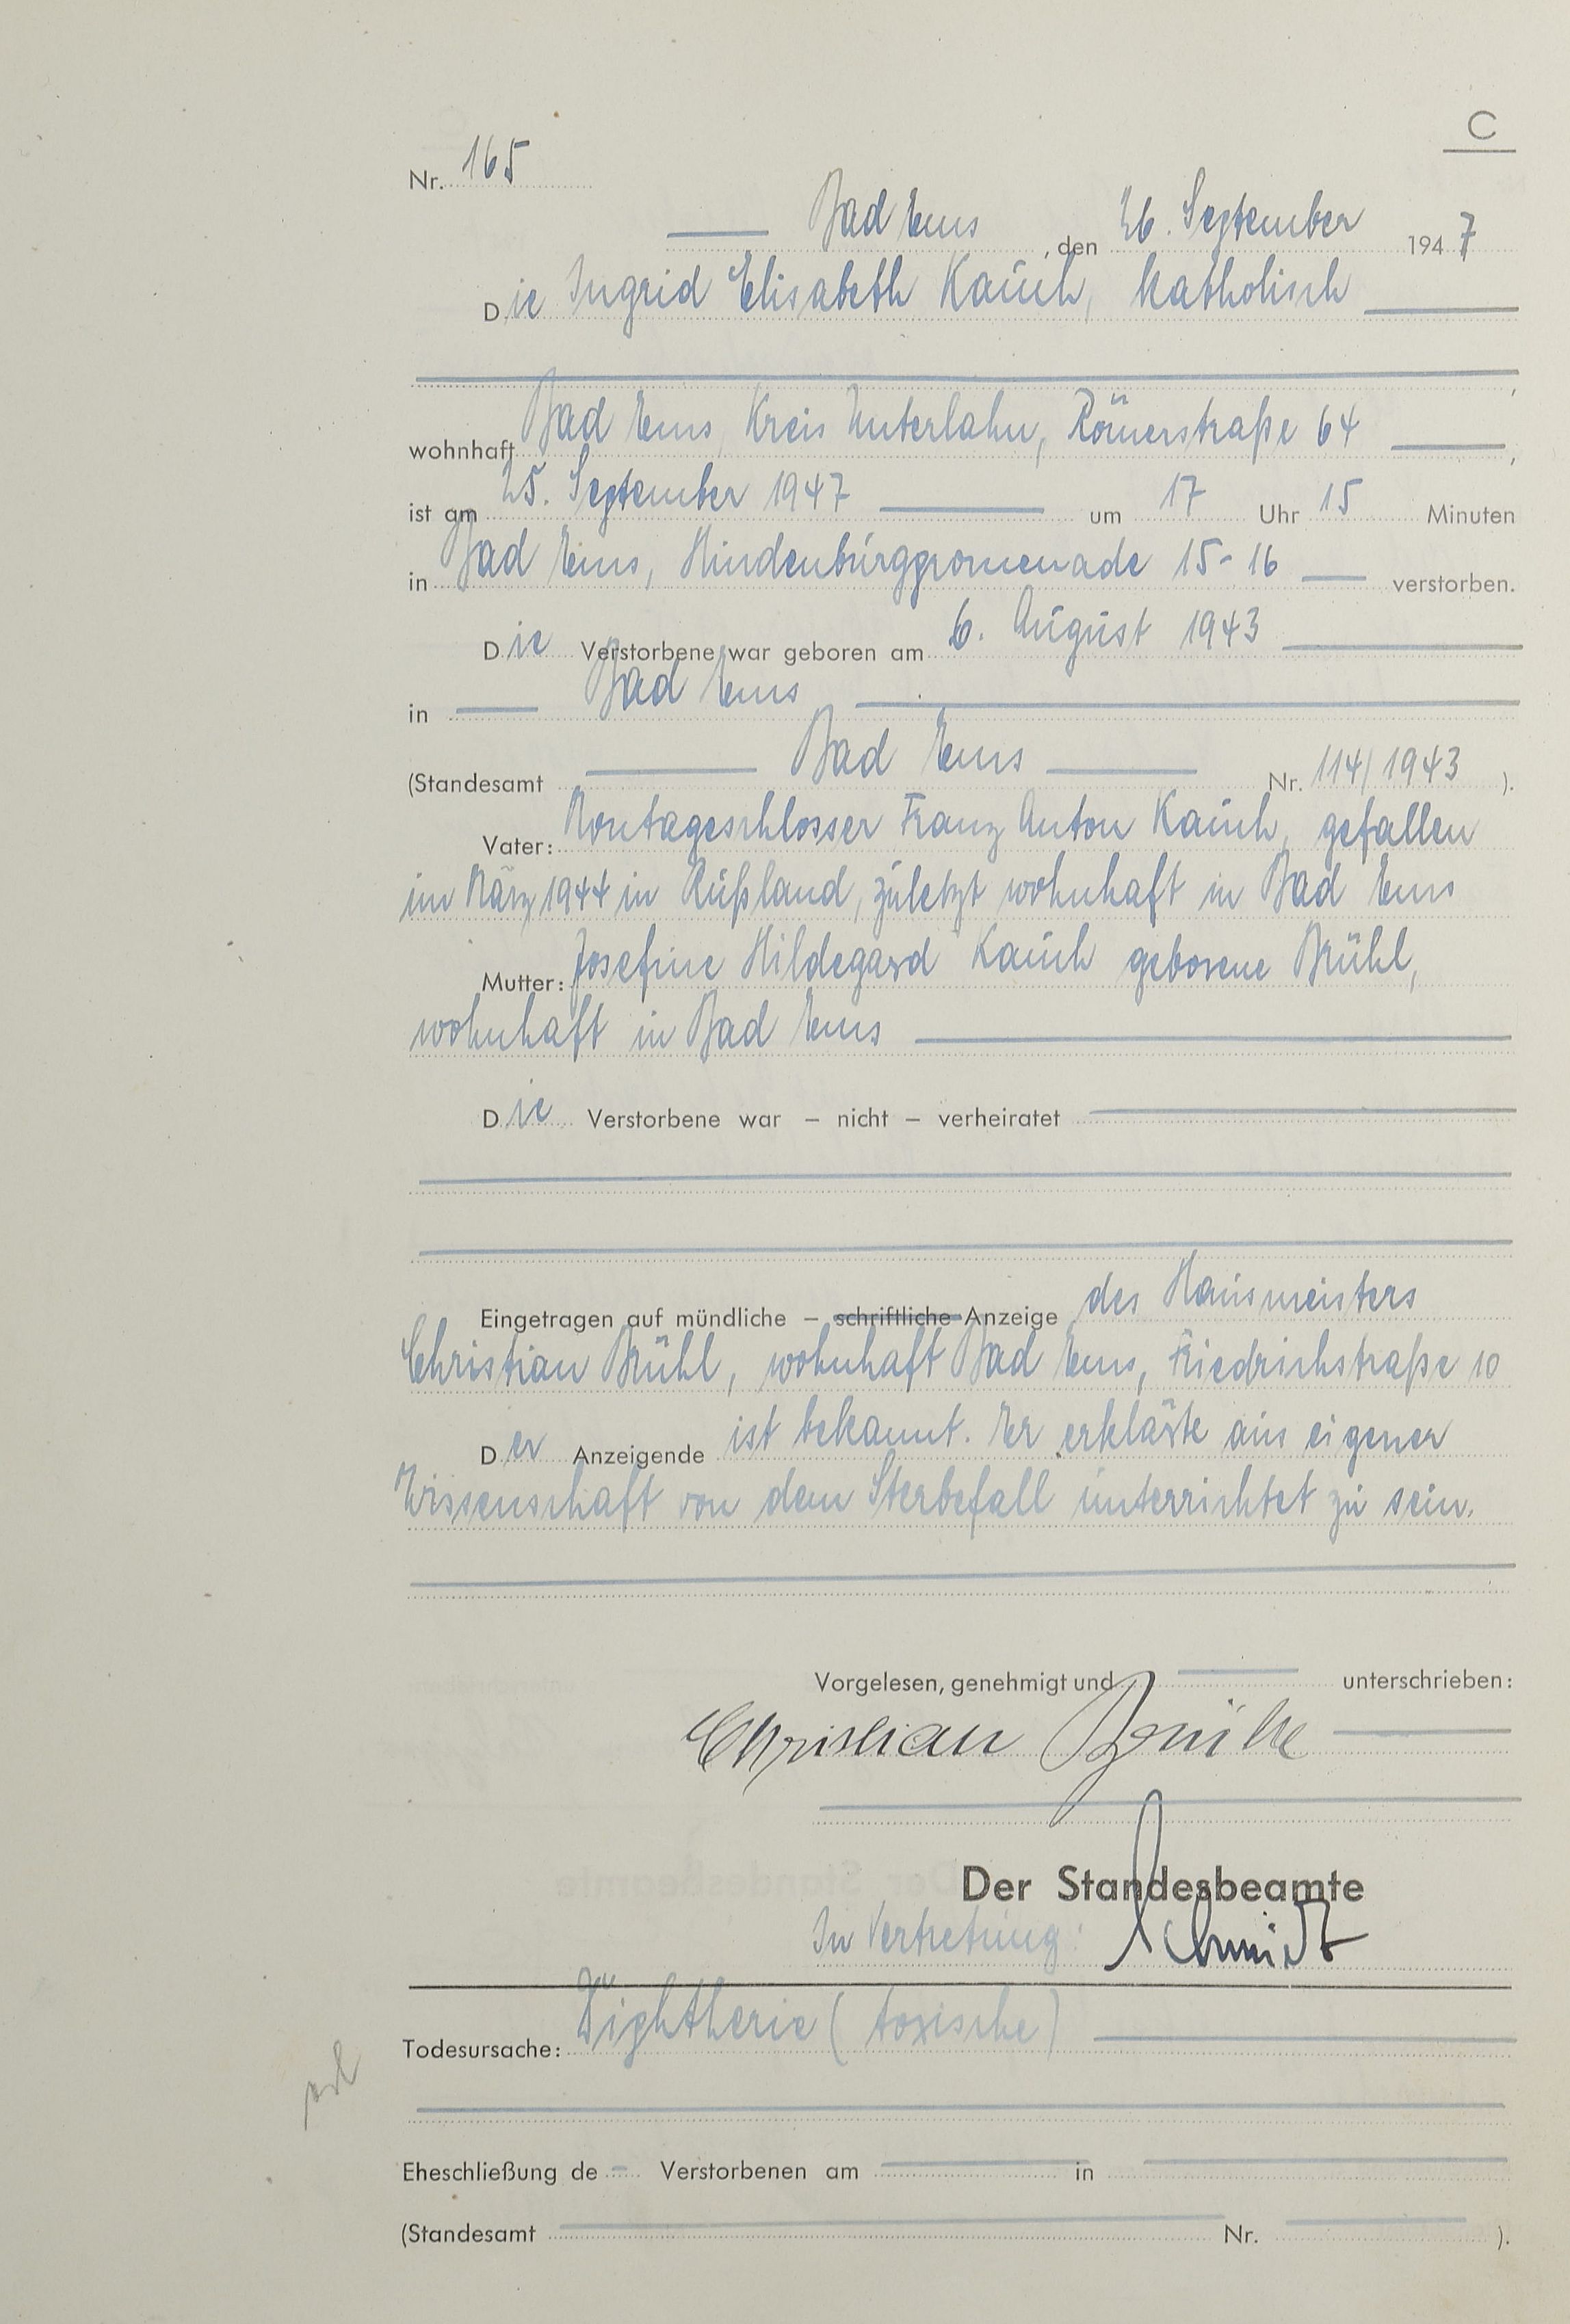 C
Nr. 165
Bad Ems, den 26. September 1947
Die Ingrid Elisabeth Kauch, katholisch
,
wohnhaft Bad Ems, Kreis Unterlahn, Römerstraße 64,
ist am 25. September 1947 um 17 Uhr 15 Minuten
in Bad Ems, Hindenburgpromenade 15-16 verstorben.
Die Verstorbene war geboren am 6. August 1943
in Bad Ems
(Standesamt Bad Ems Nr. 114/1943).
Vater: Montageschlosser Franz Anton Kauch, gefallen
im März 1944 in Rußland, zuletzt wohnhaft in Bad Ems
Mutter: Josefine Hildegard Kauch geborene Brühl,
wohnhaft in Bad Ems
Die Verstorbene war – nicht – verheiratet
Eingetragen auf mündliche – schriftliche Anzeige des Hausmeisters
Christian Brühl, wohnhaft Bad Ems, Friedrichstraße 10
Der Anzeigende ist bekannt. Er erklärte aus eigener
Wissenschaft von dem Sterbefall unterrichtet zu sein.
Vorgelesen, genehmigt und unterschrieben:
Christian Brühl
Der Standesbeamte
In Vertretung: Schmidt
Todesursache: Diphtherie (toxische)
Eheschließung de - Verstorbenen am in
(Standesamt Nr. ).